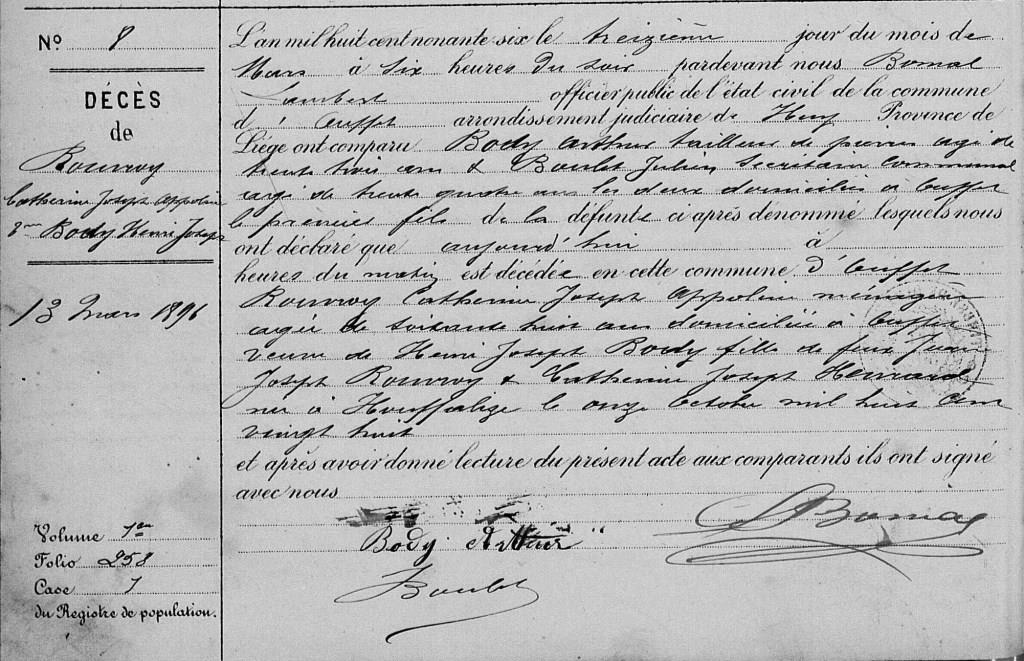 N° 8
DÉCÈS
de
Rouvroy
Catherine Joseph Appoline
Vve Body Henri Joseph
13 Mars 1896
Volume 1er
Folio 258
Case 7
du Registre de population.
L'an mil huit cent nonante six le treizième jour du mois de
Mars à six heures du soir pardevant nous Bomal
Lambert officier public de l'état civil de la commune
d' Ouffet arrondissement judiciaire de Huy Province de
Liége ont comparu Body Arthur tailleur de pierres agé de
trente trois ans & Boulet Julien Secrétaire Communal
agé de trente quatre ans les deux domiciliés à Ouffet
le premier fils de la défunte ci après dénommé lesquels nous
ont déclaré que aujourd'hui à
heures du matin est décédée en cette commune d' Ouffet
Rouvroy Catherine Joseph Appoline ménagère
agée de soixante huit ans domiciliée à Ouffet
veuve de Henri Joseph Body fille de feux Jean
Joseph Rouvroy & Catherine Joseph Hemard
née à Houffalize le onze Octobre mil huit cent
vingt huit
et après avoir donné lecture du présent acte aux comparants ils ont signé
avec nous
L Bomal
Body Arthur
Boulet